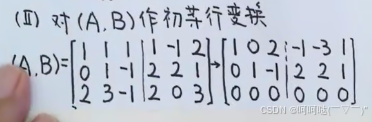 (II) 对(A,B)作初等行变换
(A,B)=[1 1 1 | 1 -1 2
0 1 -1 | 2 2 1
2 3 -1 | 2 0 3] → [1 0 2 | -1 -3 1
0 1 -1 | 2 2 1
0 0 0 | 0 0 0]
CSDN @呵呵哒(￣▽￣)"